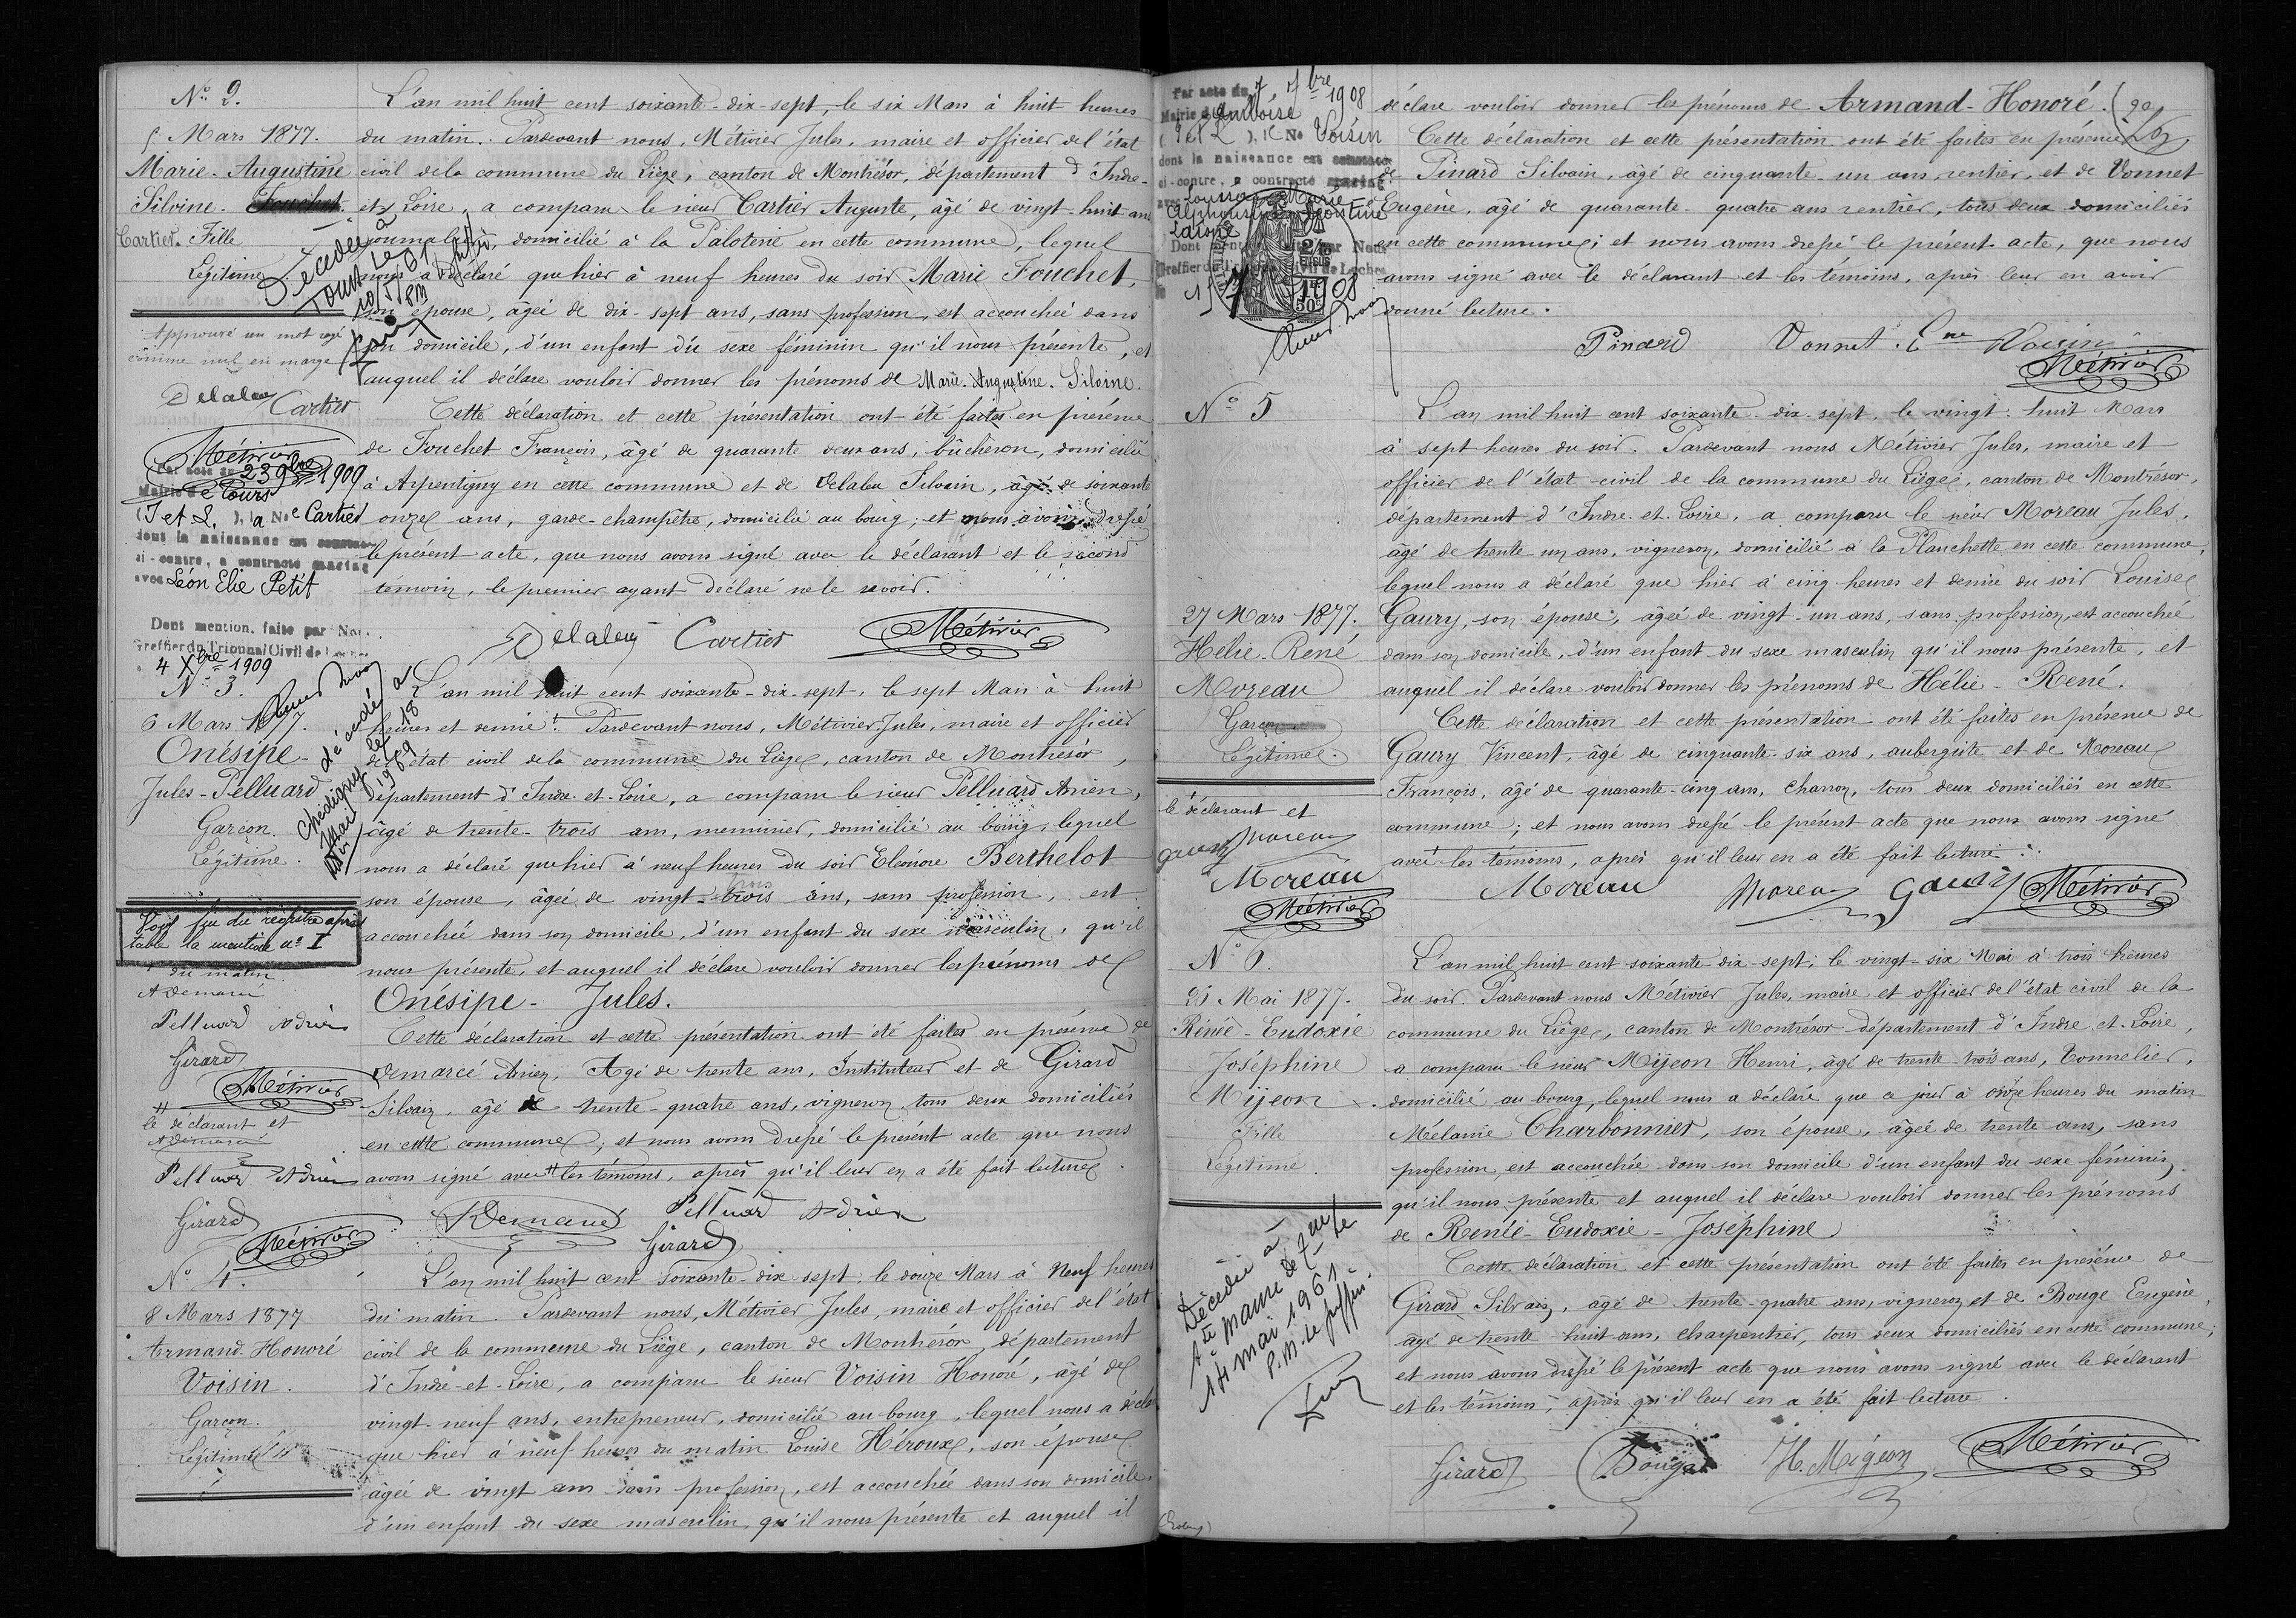 N° 2.
5 Mars 1877.
Marie-Augustine
Silvine-Fouchet.
Cartier. Fille
Légitime.
Décédée à
Tours le
10/5/61
Approuvé un mot rayé
comme nul en marge
Delaleu Cartier
Métivier
L'an mil huit cent soixante-dix-sept, le six Mars à huit heures
du matin. Pardevant nous, Métivier Jules, maire et officier de l'état
civil de la commune du Liège, canton de Montrésor, département d'Indre-
et-Loire, a comparu le sieur Cartier Auguste, âgé de vingt-huit ans
journalier, domicilié à la Paloterie en cette commune, lequel
nous a déclaré que hier à neuf heures du soir Marie Fouchet,
son épouse, âgée de dix-sept ans, sans profession, est accouchée dans
son domicile, d'un enfant du sexe féminin qu'il nous présente, et
auquel il déclare vouloir donner les prénoms de Marie-Augustine-Silvine.
Cette déclaration et cette présentation ont été faites en présence
de Fouchet François, âgé de quarante deux ans, bûcheron, domicilié
à Arpentigny en cette commune et de Delaleu Silvain, âgé de soixante
onze ans, garde-champêtre, domicilié au bourg; et nous avons dressé
le présent acte, que nous avons signé avec le déclarant et le second
témoin, le premier ayant déclaré ne le savoir.
Delaleu Cartier Métivier
Par acte du 23 9bre 1909
Mairie de Tours
(I et L.), la Née Cartier
dont la naissance est constatée
ci-contre, a contracté mariage
avec Léon Elie Petit
Dont mention faite par Nous
Greffier du Tribunal Civil de Loches
4 Xbre 1909
N° 3.
6 Mars 1877.
Onésipe-
Jules-Pelluard
Garçon.
Légitime.
décédé à
Chédigny le 18
Mai 1969
Voir fin du registre après
table la mention n° I
du matin
ADemarcé
Pelluard Adrien
Girard
Métivier
le déclarant et
ADemarcé
Pelluard Adrien
Girard
Métivier
L'an mil huit cent soixante-dix-sept, le sept Mars à huit
heures et demie. Pardevant nous, Métivier Jules, maire et officier
de l'état civil de la commune du Liège, canton de Montrésor,
département d'Indre-et-Loire, a comparu le sieur Pelluard Adrien,
âgé de trente-trois ans, menuisier, domicilié au bourg, lequel
nous a déclaré que hier à neuf heures du soir Eléonore Berthelot
son épouse, âgée de vingt-trois ans, sans profession, est
accouchée dans son domicile, d'un enfant du sexe masculin, qu'il
nous présente, et auquel il déclare vouloir donner les prénoms de
Onésipe-Jules.
Cette déclaration et cette présentation ont été faites en présence de
Demarcé Adrien, Agé de trente ans, Instituteur et de Girard
Silvain, âgé de trente-quatre ans, vigneron, tous deux domiciliés
en cette commune; et nous avons dressé le présent acte que nous
avons signé avec les témoins, après qu'il leur en a été fait lecture.
ADemarcé Pelluard Adrien
Girard
N° 4.
8 Mars 1877
Armand-Honoré
Voisin.
Garçon.
Légitime
L'an mil huit cent soixante-dix sept, le douze Mars à Neuf heures
du matin. Pardevant nous, Métivier Jules, maire et officier de l'état
civil de la commune du Liège, canton de Montrésor, département
d'Indre-et-Loire, a comparu le sieur Voisin Honoré, âgé de
vingt-neuf ans, entrepreneur, domicilié au bourg, lequel nous a décla
que hier à neuf heures du matin Louise Héroux, son épouse
âgée de vingt ans sans profession, est accouchée dans son domicile
d'un enfant du sexe masculin, qu'il nous présente et auquel il
Par acte du 7, 7bre 1908
Mairie d'Amboise
(I et L), le No Voisin
dont la naissance est constatée
ci-contre, a contracté mariage
avec
Alphonsine Léontine
Dont mention faite par Nous
Greffier du Tribunal Civil de Loches
1908
déclare vouloir donner les prénoms de Armand-Honoré.
Cette déclaration et cette présentation ont été faites en présence
de Pinard Silvain, âgé de cinquante-un ans rentier, et de Vonnet
Eugène, âgé de quarante quatre ans rentier, tous deux domiciliés
en cette commune; et nous avons dressé le présent acte, que nous
avons signé avec le déclarant et les témoins, après leur en avoir
donné lecture.
Pinard Vonnet Ene Voisin
Métivier
N° 5
27 Mars 1877.
Helie-René
Moreau
Garçon
Légitime.
le déclarant et
Gaury Moreau
Moreau
Métivier
L'an mil huit cent soixante-dix-sept, le vingt-huit Mars
à sept heures du soir. Pardevant nous Métivier Jules, maire et
officier de l'état-civil de la commune du Liège, canton de Montrésor,
département d'Indre-et-Loire, a comparu le sieur Moreau Jules,
âgé de trente un ans, vigneron, domicilié à la Planchette en cette commune,
lequel nous a déclaré que hier à cinq heures et demie du soir Louise
Gaury, son épouse, âgée de vingt-un ans, sans profession, est accouchée
dans son domicile, d'un enfant du sexe masculin qu'il nous présente, et
auquel il déclare vouloir donner les prénoms de Hélie-René.
Cette déclaration et cette présentation ont été faites en présence de
Gaury Vincent, âgé de cinquante-six ans, aubergiste et de Moreau
François, âgé de quarante-cinq ans, Charron, tous deux domiciliés en cette
commune; et nous avons dressé le présent acte que nous avons signé
avec les témoins, après qu'il leur en a été fait lecture.
Moreau Moreau Gaury Métivier
N° 6.
26 Mai 1877.
Rénée-Eudoxie
Joséphine
Mijeon
Fille
Légitime
Décédée à
Ste Maure de Tne le
14 mai 1961.
L'an mil huit cent soixante dix-sept, le vingt-six Mai à trois heures
du soir. Pardevant nous Métivier Jules, maire et officier de l'état civil de la
commune du Liège, canton de Montrésor département d'Indre-et-Loire,
a comparu le sieur Mijeon Henri, âgé de trente-trois ans, Tonnelier,
domicilié au bourg, lequel nous a déclaré que ce jour à onze heures du matin
Mélanie Charbonnier, son épouse, âgée de trente ans, sans
profession, est accouchée dans son domicile d'un enfant du sexe féminin,
qu'il nous présente et auquel il déclare vouloir donner les prénoms
de Renée-Eudoxie-Joséphine
Cette déclaration et cette présentation ont été faites en présence de
Girard Silvain, âgé de trente-quatre ans, vigneron et de Bouge Eugène,
âgé de trente-huit ans, charpentier, tous deux domiciliés en cette commune;
et nous avons dressé le présent acte que nous avons signé avec le déclarant
et les témoins, après qu'il leur en a été fait lecture.
Girard Bouge H. Migeon Métivier